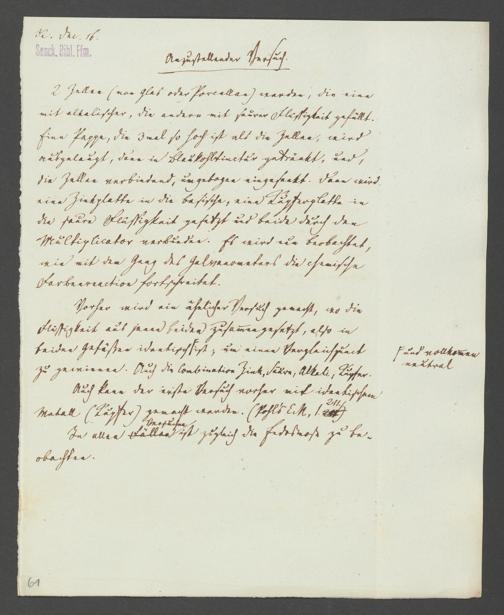 Dec. 16.
Senck. Bibl. Ffm.
Anzustellender Versuch.
2 Zellen (von Glas oder Porcellan) werden, die eine
mit alkalischer, die andere mit saurer Flüssigkeit gefüllt.
Eine Pappe, die 3 mal so hoch ist als die Zellen, wird
ausgelaugt, dann in Blaukohltinctur getränkt, und,
die Zellen verbindend, umgebogen eingesenkt. Dann wird
eine Zinkplatte in die basische, eine Kupferplatte in
die saure Flüssigkeit gesetzt und beide durch den
Multiplicator verbunden. Es wird nun beobachtet,
wie mit dem Gang des Galvanometers die chemische
Farbenreaction fortschreitet.
Vorher wird ein ähnlicher Versuch gemacht, wo die
Flüssigkeit aus jenen beiden zusammengesetzt, also in
beiden Gefässen identisch ist, um einen Vergleichpunct
und vollkommen
neutral
zu gewinnen. Auch die Combination Zink, Säure, Alkali, Kupfer.
Auch kann der erste Versuch vorher mit identischem
Metall (Kupfer) gemacht werden. (Pohls E.M.,
In allen Versuchen ist zugleich die Endosmose zu be-
obachten.
61